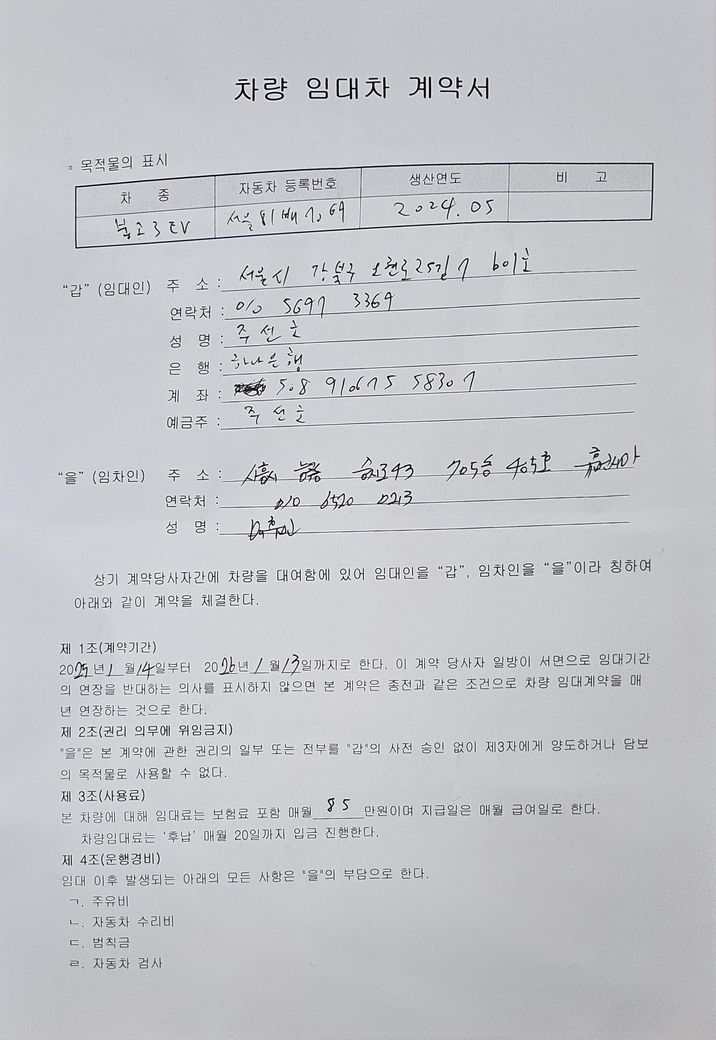 차량 임대차 계약서
◦ 목적물의 표시
차 종 자동차 등록번호 생산연도 비 고
봉고3 EV 서울 81배 2024.05
“갑” (임대인) 주 소 : 서울시 강북구 오현로25길 7 601호
연락처 : 010 5697 3369
성 명 : 주선호
은 행 : 하나은행
계 좌 : 508 910675 58307
예금주 : 주선호
“을” (임차인) 주 소 : 시흥시 능곡 승지로43 705동 405호
연락처 : 010 6520 0213
성 명 :
상기 계약당사자간에 차량을 대여함에 있어 임대인을 “갑”, 임차인을 “을”이라 칭하여
아래와 같이 계약을 체결한다.
제 1조(계약기간)
2025년 1월 14일부터 2026년 1월 13일까지로 한다. 이 계약 당사자 일방이 서면으로 임대기간
의 연장을 반대하는 의사를 표시하지 않으면 본 계약은 종전과 같은 조건으로 차량 임대계약을 매
년 연장하는 것으로 한다.
제 2조(권리 의무에 위임금지)
"을"은 본 계약에 관한 권리의 일부 또는 전부를 "갑"의 사전 승인 없이 제3자에게 양도하거나 담보
의 목적물로 사용할 수 없다.
제 3조(사용료)
본 차량에 대해 임대료는 보험료 포함 매월 85 만원이며 지급일은 매월 급여일로 한다.
차량임대료는 ‘후납’ 매월 20일까지 입금 진행한다.
제 4조(운행경비)
임대 이후 발생되는 아래의 모든 사항은 "을"의 부담으로 한다.
ㄱ. 주유비
ㄴ. 자동차 수리비
ㄷ. 범칙금
ㄹ. 자동차 검사